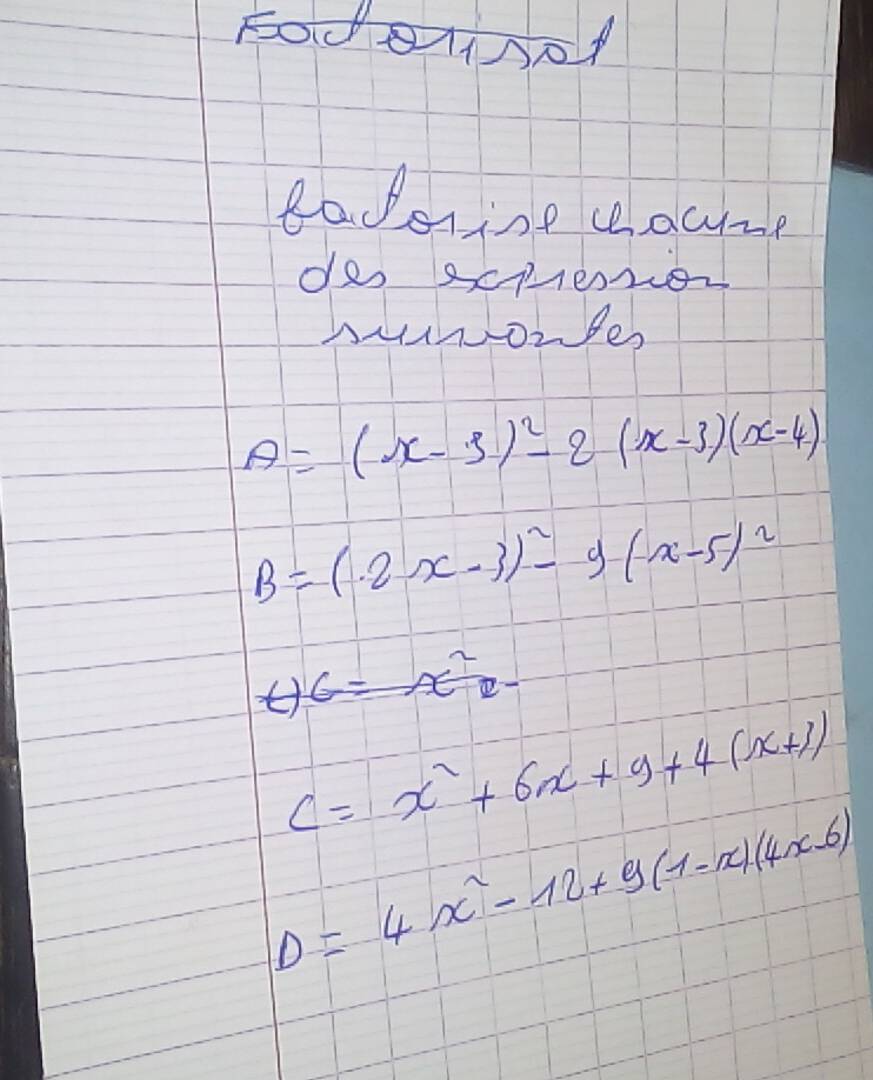 Factorisat
factorise chacune
des expression
suivantes
A = (x - 3)² - 2 (x - 3)(x - 4)
B = (2x - 3)² - 9 (x - 5)²
C = x²
C = x² + 6x + 9 + 4 (x + 3)
D = 4x² - 12 + 9 (1 - x)(4x - 6)